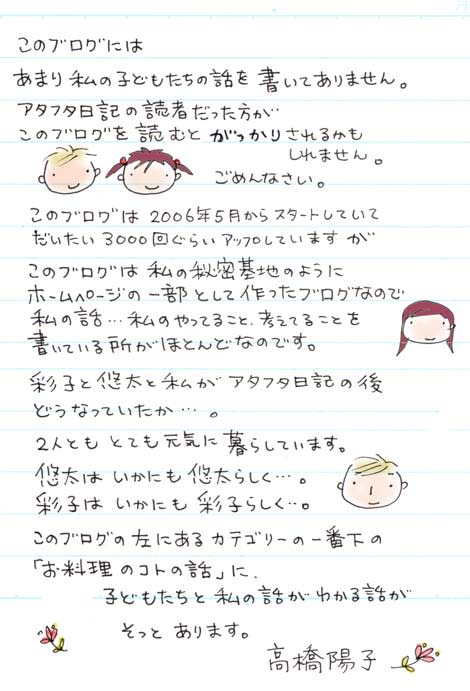 このブログには
あまり私の子どもたちの話を書いてありません。
アタフタ日記の読者だった方が…
このブログを読むとがっかりされるかも
しれません。
ごめんなさい。
このブログは2006年5月からスタートしていて
だいたい3000回ぐらいアップしていますが
このブログは私の秘密基地のように
ホームページの一部として作ったブログなので
私の話…私のやってること、考えてることを
書いている所がほとんどなのです。
彩子と悠太と私がアタフタ日記の後
どうなっていたか…。
2人ともとても元気に暮らしています。
悠太はいかにも悠太らしく…。
彩子はいかにも彩子らしく…。
このブログの左にあるカテゴリーの一番下の
「お料理のコトの話」に、
子どもたちと私の話がわかる話が
そっとあります。
高橋陽子